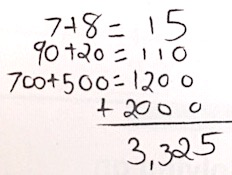 7+8= 15
90+20=110
700+500=1200
+ 2000
3,325